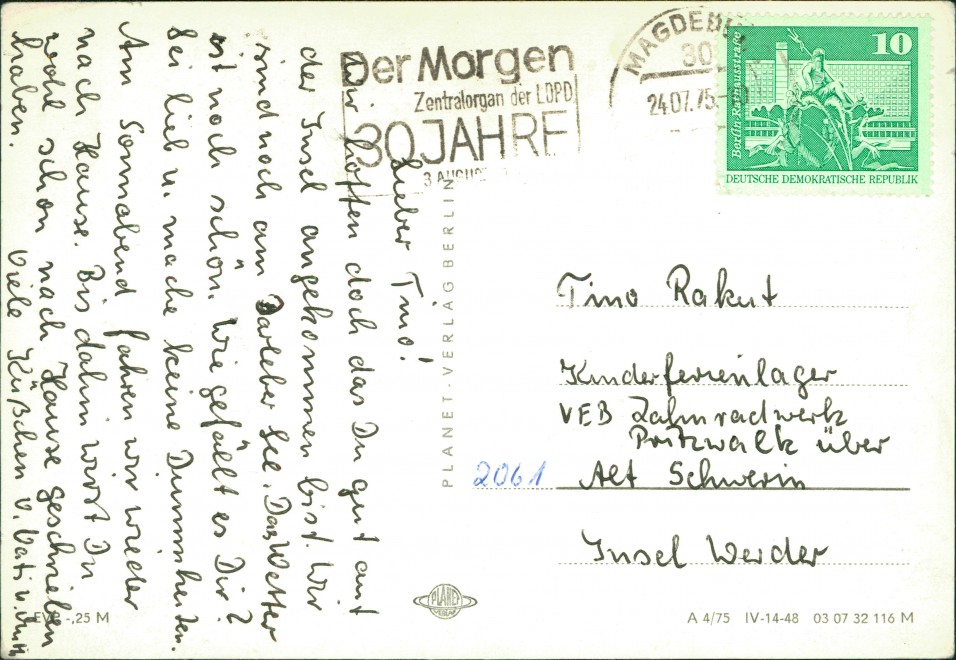 Lieber Tino!
Wir hoffen doch das Du gut auf
der Insel angekommen bist. Wir
sind noch am Barleber See. Das Wetter
ist noch schön. Wie gefällt es Dir?
Sei lieb u. mache keine Dummheiten.
Am Sonnabend fahren wir wieder
nach Hause. Bis dahin wirst Du
wohl schon nach Hause geschrieben
haben.
Viele Küßchen v. Vati u. Mutti
Der Morgen
Zentralorgan der LDPD
30 JAHRE
3 AUGUST
MAGDEBU
30
24.07.75
10
Berlin-Rathausstraße
DEUTSCHE DEMOKRATISCHE REPUBLIK
PLANET-VERLAG BERLIN
Tino Rakut
Kinderferienlager
VEB Zahnradwerk
Pritzwalk über
2061 Alt Schwerin
Insel Werder
PLANET
VERLAG
EVP -,25 M
A 4/75 IV-14-48 03 07 32 116 M